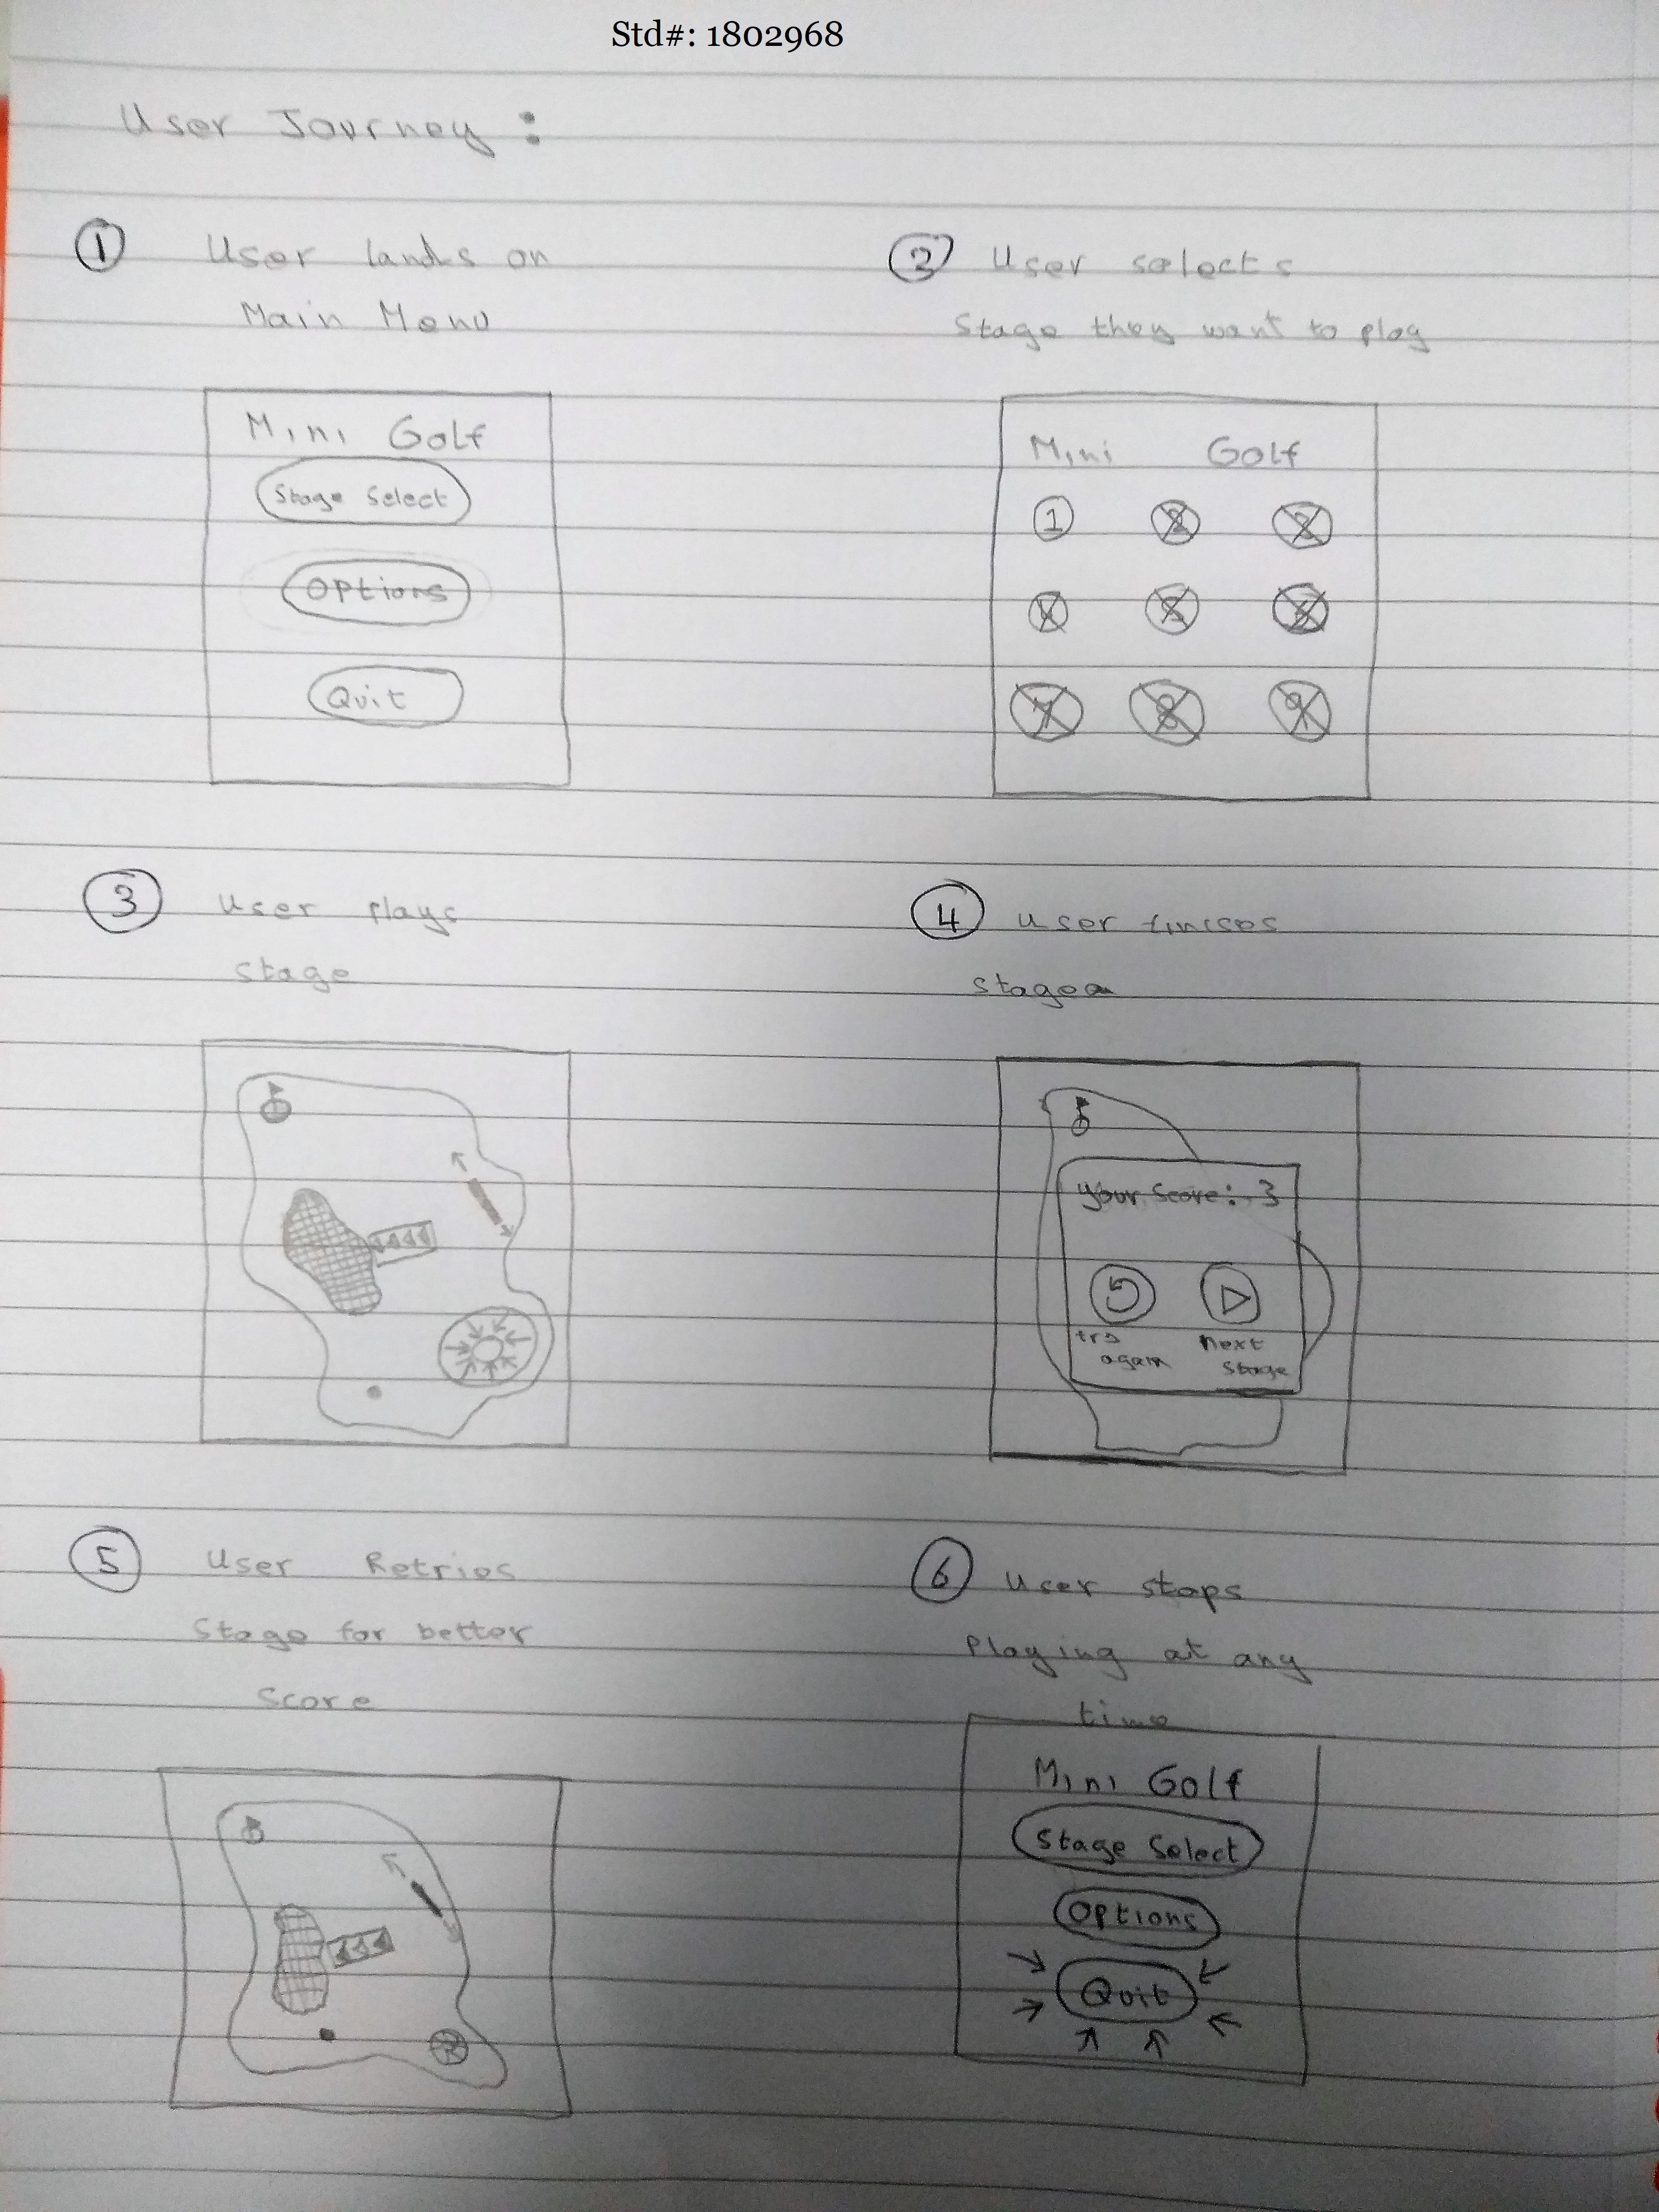 Std#: 1802968
User Journey :
1 User lands on
Main Menu
Mini Golf
Stage Select
Options
Quit
2 User selects
Stage they want to play
Mini Golf
1 2 3
4 5
7 8 9
3 User Plays
Stage
4 User finises
stage
Your Score: 3
try
again
next
stage
5 User Retries
Stage for better
Score
6 User stops
Playing at any
time
Mini Golf
Stage Select
Options
Quit